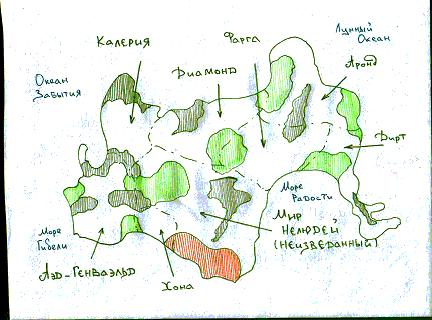 Калерия
Фарга
Лунный
Океан
Диамонд
Аронд
Океан
Забытия
Фирт
Море
Радости
Море
Гибели
Мир
Нелюдей
(Неизведанный)
Аэд-Генваэльд
Хона